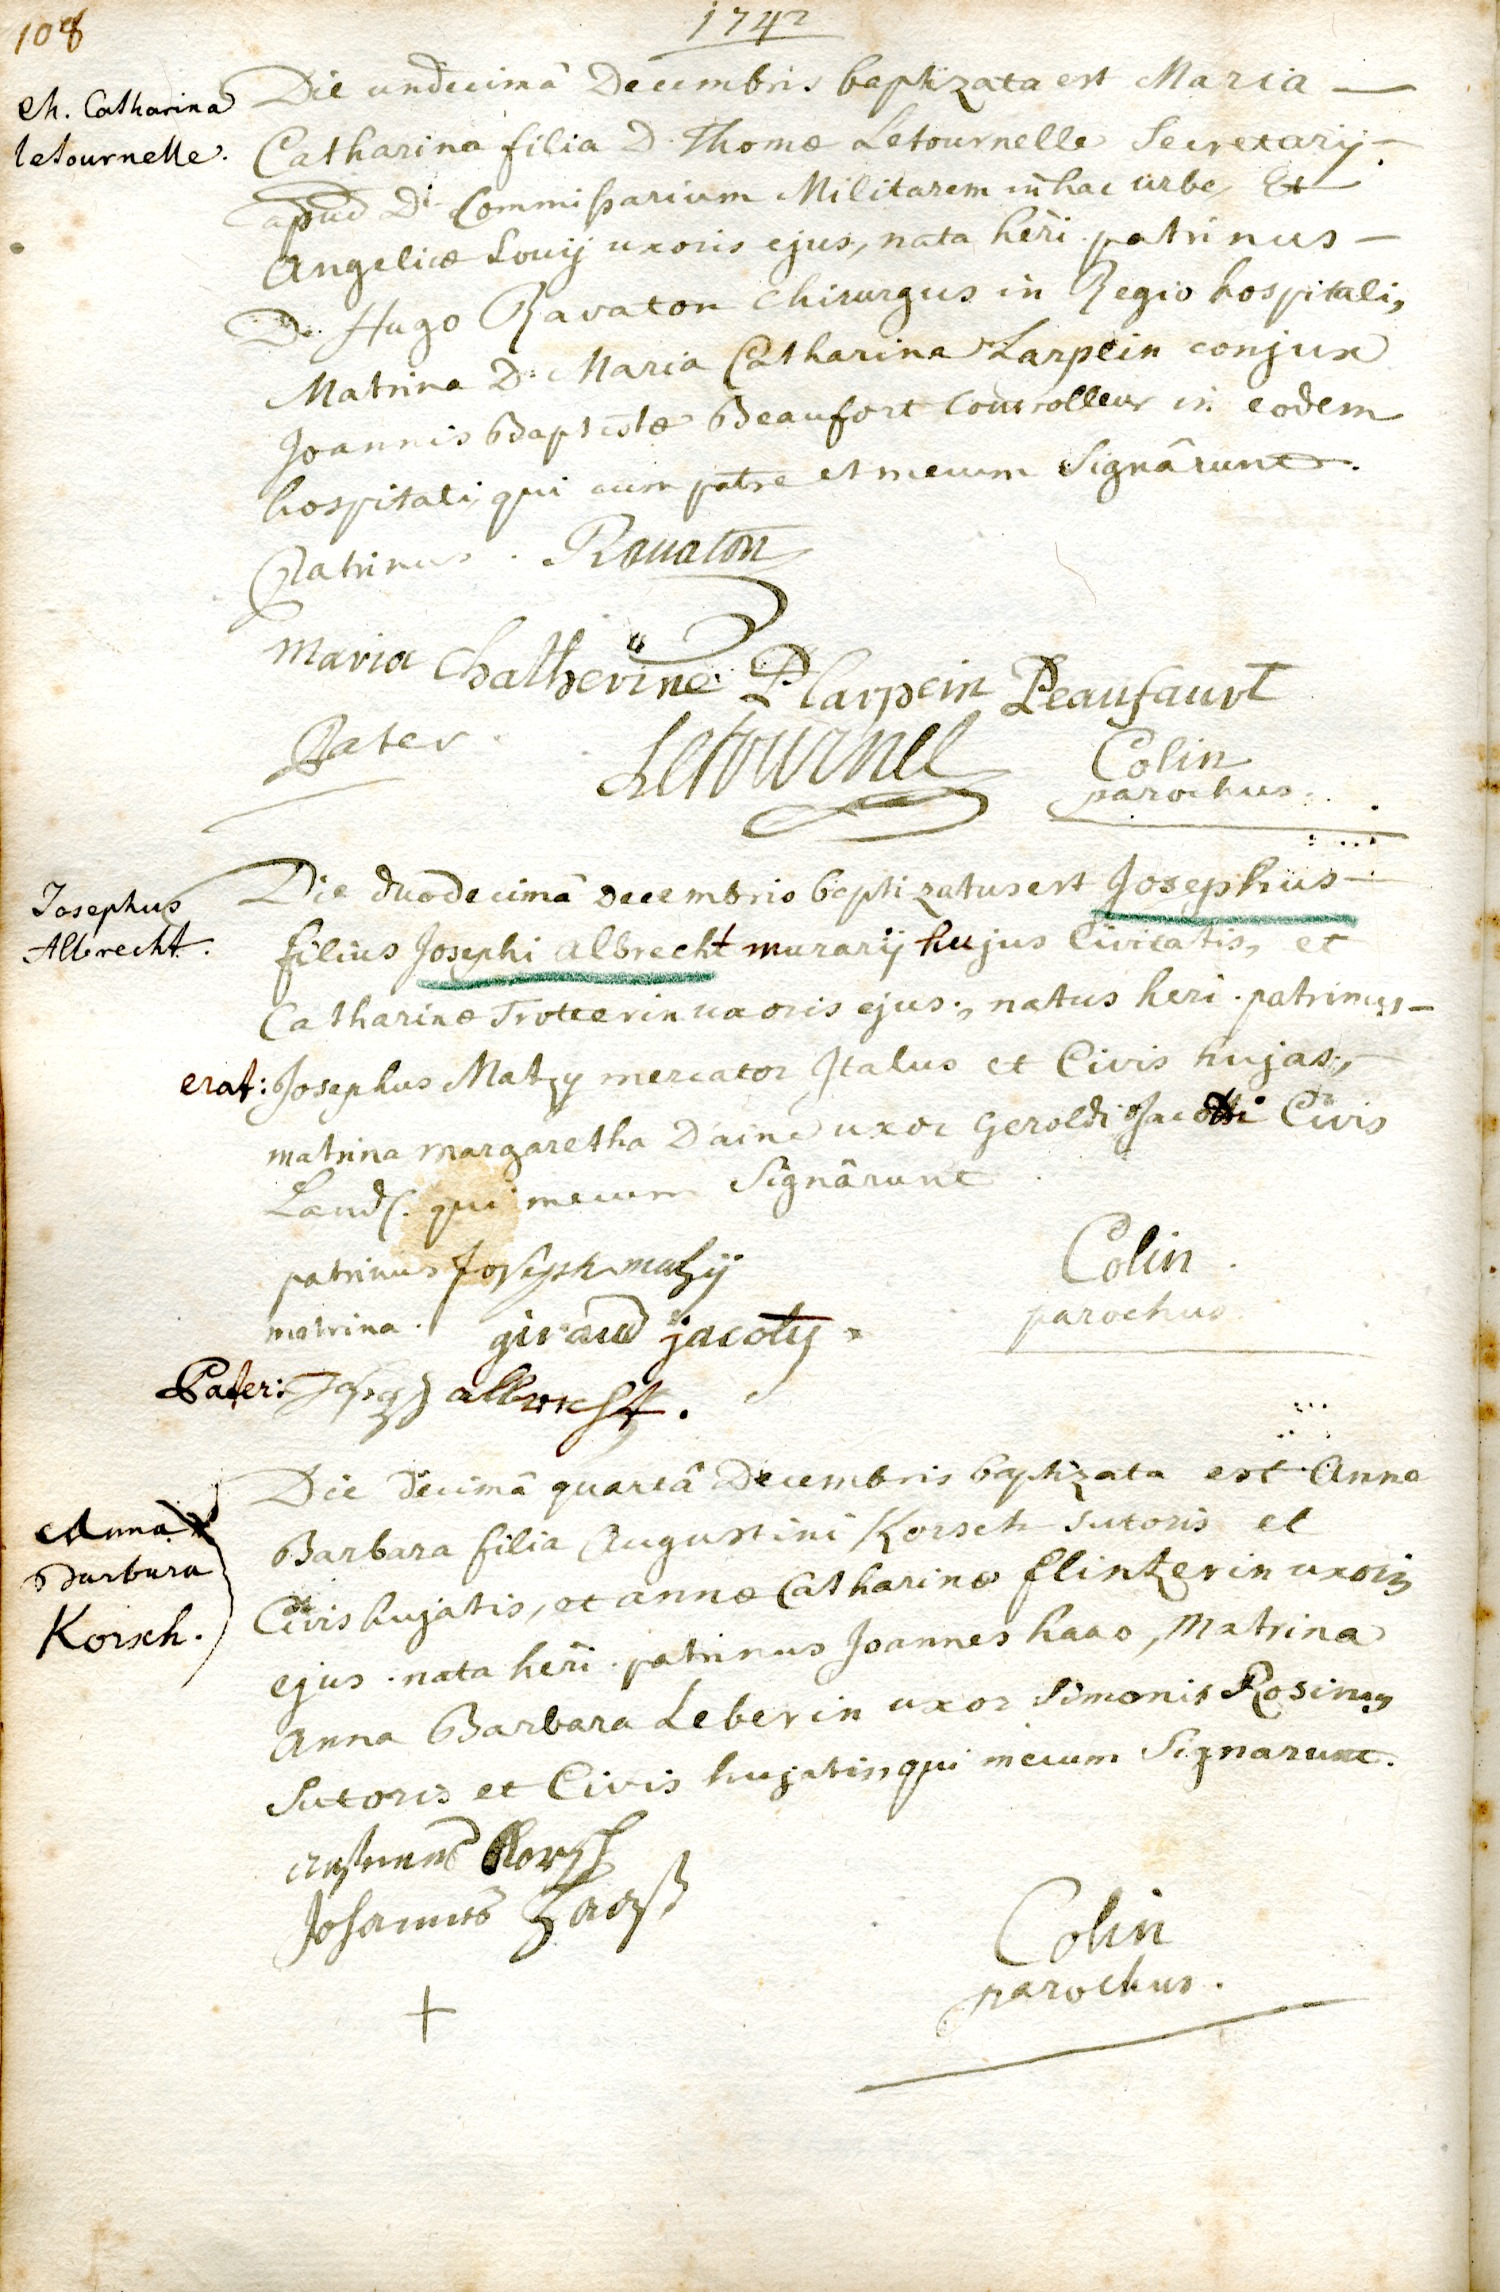 108
1742
M. Catharina
letournelle.
Die undecimâ Decembris baptizata est Maria —
Catharina filia D. Thomæ Letournelle Secretarij —
apud D. Commissarium Militarem in hac urbe, Et
Angelicæ Louij uxoris ejus, nata heri. patrinus —
D. Hugo Ravaton chirurgus in Regio hospitali,
Matrina D. Maria Catharina Larpein conjux
Joannis Baptistæ Beaufort Controlleur in eodem
hospitali, qui cum patre et mecum Signârunt.
Patrinus. Ravaton
Maria Chatherine Larpein Beaufaurt
Pater. Letournel
Colin
parochus.
Josephus
Albrecht.
Die duodecimâ Decembris baptizatus est Josephus —
filius Josephi Albrecht murarij hujus Civitatis, et
Catharinæ Trotterin uxoris ejus, natus heri. patrinus —
erat: Josephus Matzy mercator Italus et Civis hujas, —
matrina Margaretha Daine uxor Geroldi Jacotti Civis
Land. qui mecum Signârunt
patrinus Joseph matzij
Colin.
parochus
matrina. giraud jacoty
Pater: Joseph albrecht.
Anna
Barbara
Korsch.
Die decimâ quartâ Decembris baptizata est Anna
Barbara filia Augustini Korsch Sutoris et
Civis hujatis, et annæ Catharinæ flinkerin uxoris
ejus. nata heri. patrinus Joannes haas, Matrina
Anna Barbara Leberin uxor Simonis Rosinus
Sutoris et Civis hujatis, qui mecum Signarunt.
Korsch
Johannes Haaß
+
Colin
parochus.